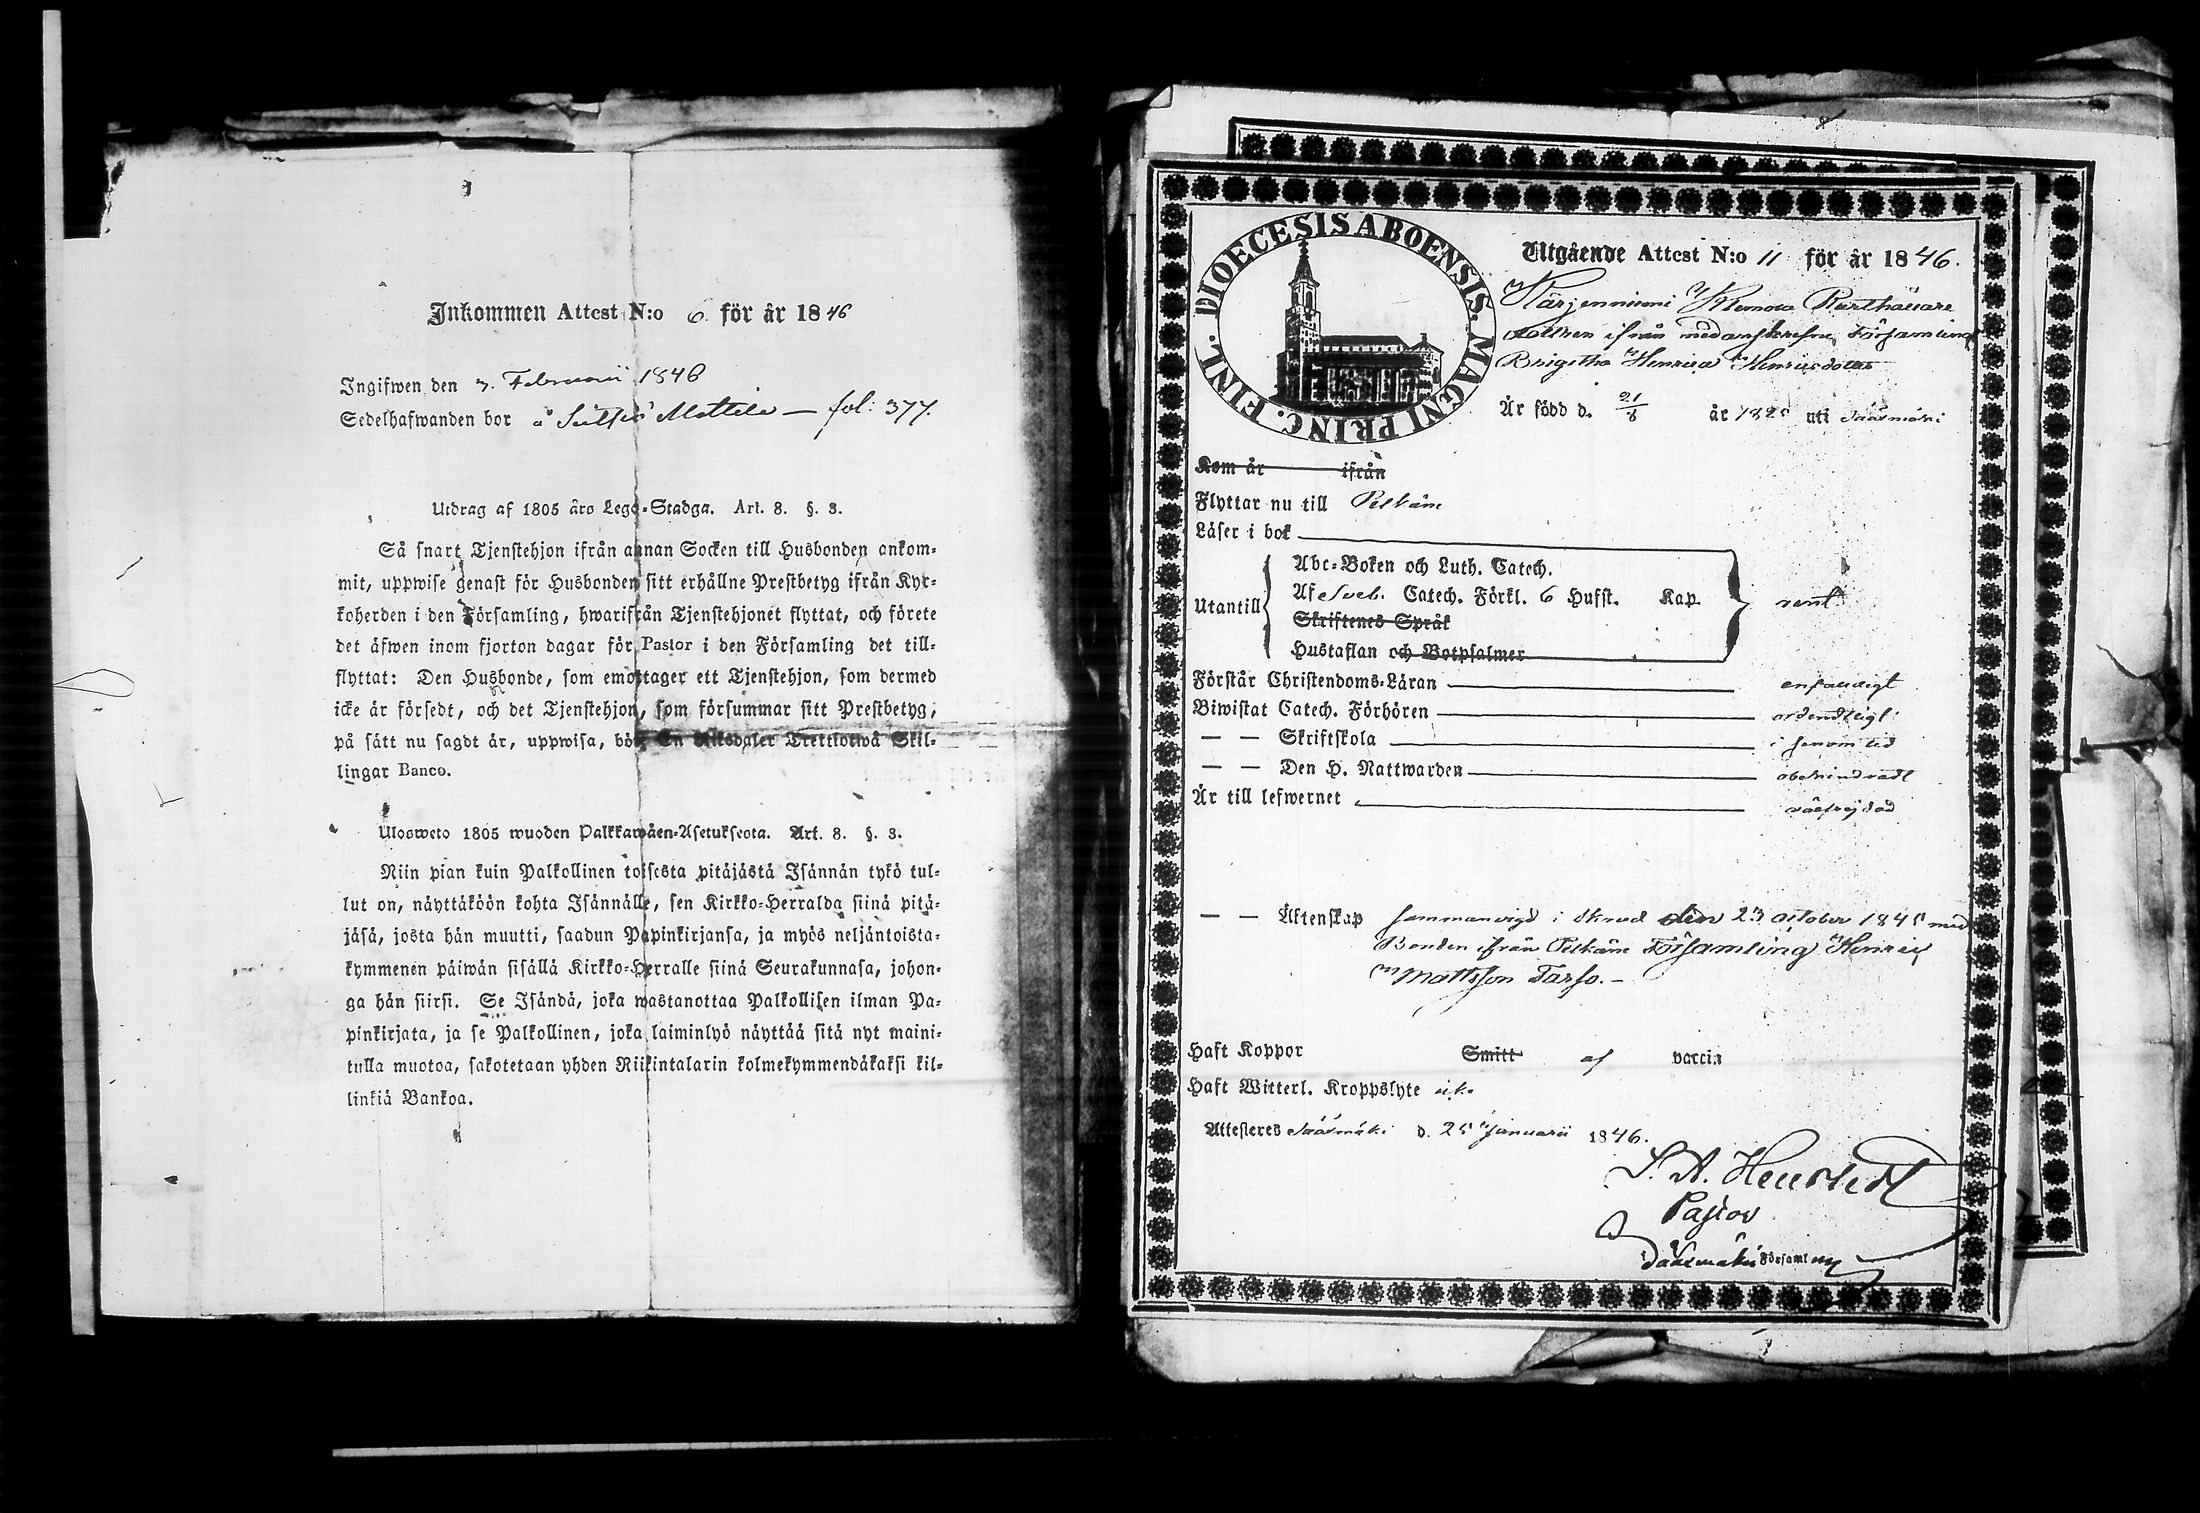 Inkommen Attest N:o 6. för år 1846
Ingifwen den 7. Februarii 1846
Sedelhafwanden bor å Mattila — fol: 377.
Utdrag af 1805 års Lego-Stadga. Art. 8. §. 3.
Så snart Tjenstehjon ifrån annan Socken till Husbonden ankom=
mit, uppwise genast för Husbonden sitt erhållne Prestbetyg ifrån Kyr=
koherden i den Församling, hwarifrån Tjenstehjonet flyttat, och förete
det äfwen inom fjorton dagar för Pastor i den Församling det till=
flyttat: Den Husbonde, som emottager ett Tjenstehjon, som dermed
icke är försedt, och det Tjenstehjon, som försummar sitt Prestbetyg,
på sätt nu sagdt är, uppwisa, böte En Riksdaler Trettiotwå Skil=
lingar Banco.
Ulosweto 1805 wuoden Palkkawäen-Asetuksesta. Art. 8. §. 3.
Niin pian kuin Palkollinen toisesta pitäjästä Isännän tykö tul=
lut on, näyttäköön kohta Isännälle, sen Kirkko-Herralda siinä pitä=
jäsä, josta hän muutti, saadun Papinkirjansa, ja myös neljäntoista=
kymmenen päiwän sisällä Kirkko-Herralle siinä Seurakunnasa, johon=
ga hän siirsi. Se Isändä, joka wastanottaa Palkollisen ilman Pa=
pinkirjata, ja se Palkollinen, joka laiminlyö näyttää sitä nyt maini=
tulla muotoa, sakotetaan yhden Riikintalarin kolmekymmendäkaksi kil=
linkiä Bankoa.
DIOECESIS ABOENSIS. MAGNI PRINC. FINL.
Utgående Attest N:o 11 för år 1846.
Kärjenniemi
ifrån Församling
Brigitha Henrica Henricsdotter
Är född d. 21/8 år 1825 uti Sääxmäki
Kom år ifrån
Flyttar nu till Pelkäne
Läser i bok
Utantill
Abc-Boken och Luth. Catech.
Af Sveb. Catech. Förkl. 6 Hufst. Kap.
Skriftenes Språk
Hustaflan och Botpsalmer
Förstår Christendoms-Läran enfaldigt
Biwistat Catech. Förhören ordendtligt
— — Skriftskola i sinom tid
— — Den H. Nattwarden obehindradt
Är till lefwernet wälfrejdad
— — Äktenskap sammanvigd i Brud den 23 October 1845 med
Bonden ifrån Pelkäne Församling Henric
Mattsson Tarso.—
Haft Koppor Smitt af vaccin
Haft Witterl. Kroppslyte
Attesteres Sääxmäki d. 25 Januarii 1846.
Pastor
i Sääxmäki Församling